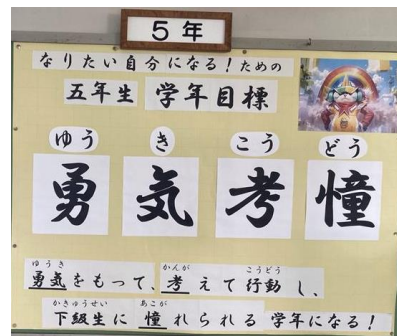 5年
なりたい自分になる！ための
五年生 学年目標
ゆう き こう どう
勇気考憧
ゆうき かんが こうどう
勇気をもって、考えて行動し、
かきゅうせい あこが
下級生に憧れられる学年になる！